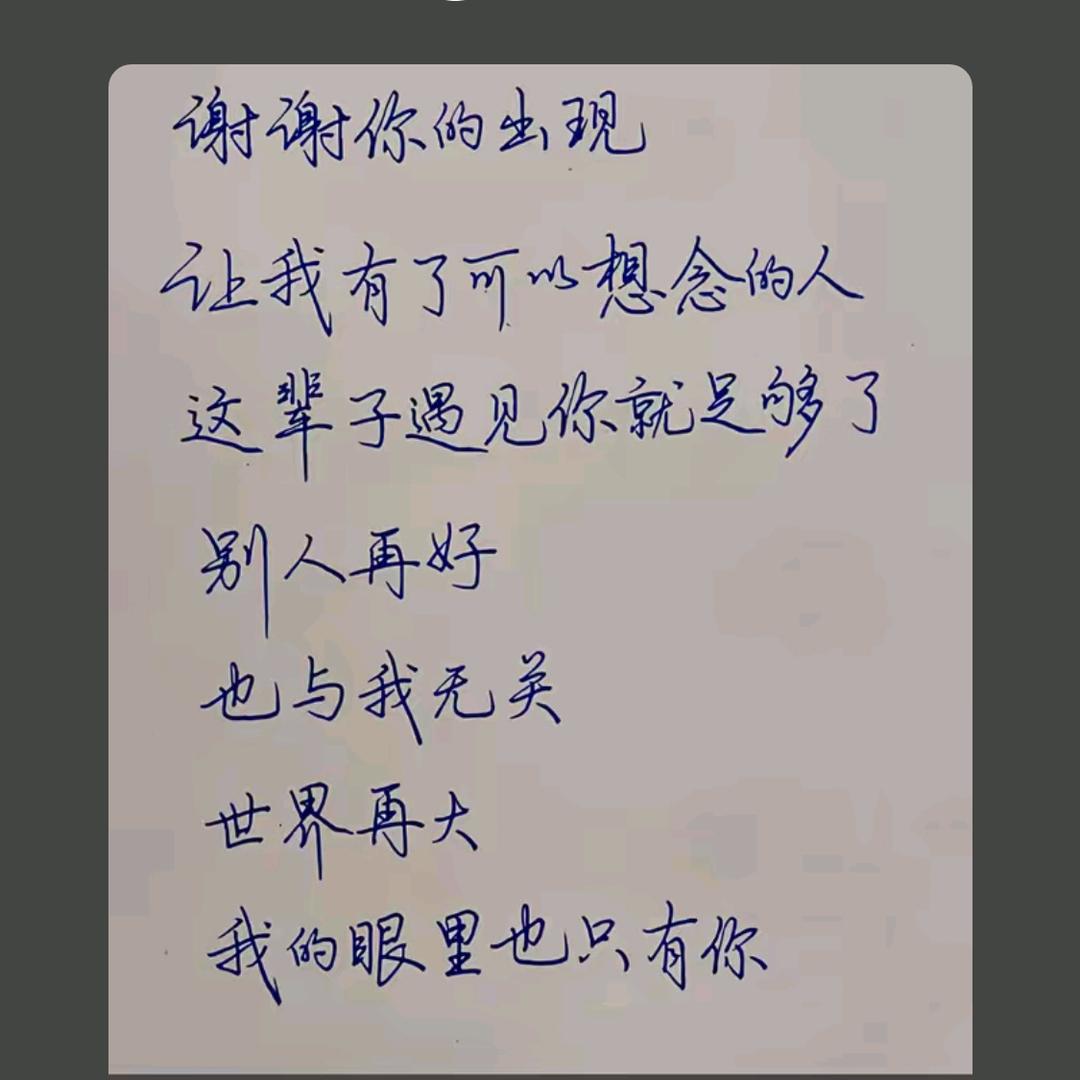 谢谢你的出现
让我有了可以想念的人
这辈子遇见你就足够了
别人再好
也与我无关
世界再大
我的眼里也只有你